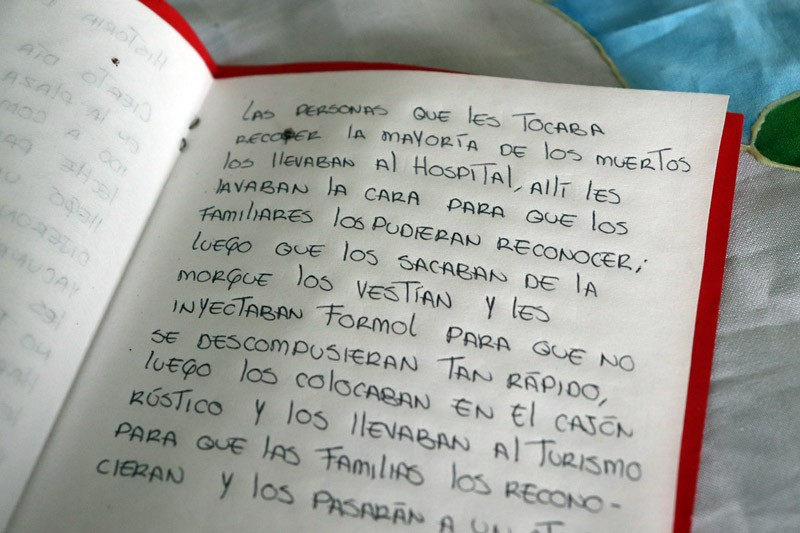 HISTORIA
CIERTO DÍA
EN LA PLAZA
LAS PERSONAS QUE LES TOCABA
RECOGER LA MAYORÍA DE LOS MUERTOS
LOS LLEVABAN AL HOSPITAL, ALLÍ LES
LAVABAN LA CARA PARA QUE LOS
FAMILIARES LOS PUDIERAN RECONOCER;
LUEGO QUE LOS SACABAN DE LA
MORGUE LOS VESTÍAN Y LES
INYECTABAN FORMOL PARA QUE NO
SE DESCOMPUSIERAN TAN RÁPIDO,
LUEGO LOS COLOCABAN EN EL CAJÓN
RÚSTICO Y LOS LLEVABAN AL TURISMO
PARA QUE LAS FAMILIAS LOS RECONO-
CIERAN Y LOS PASARÁN A UN